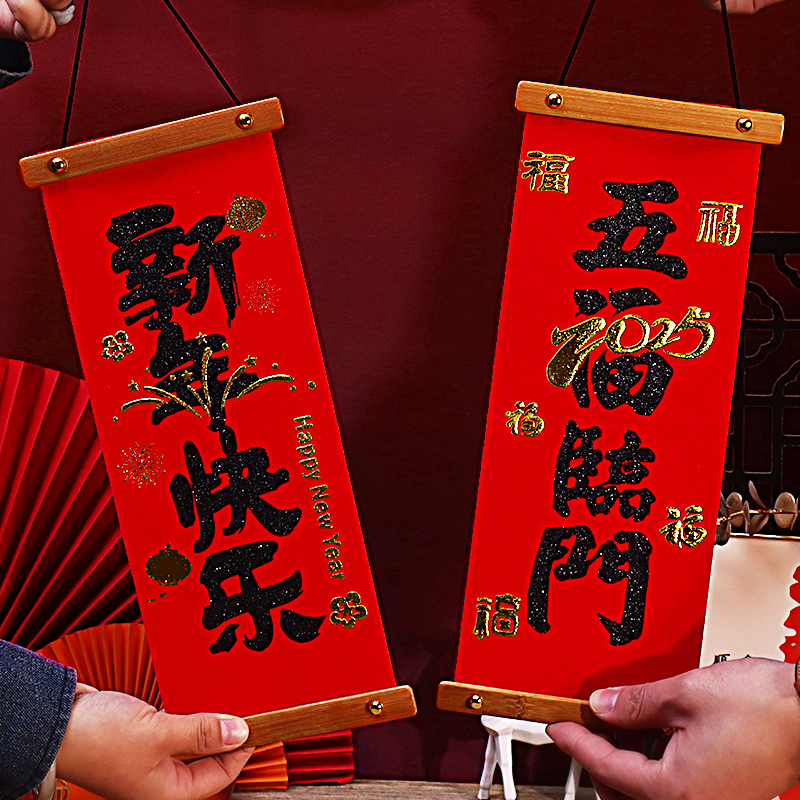 新年快乐
Happy New Year
福
福
五福臨門
2025
福
福
福